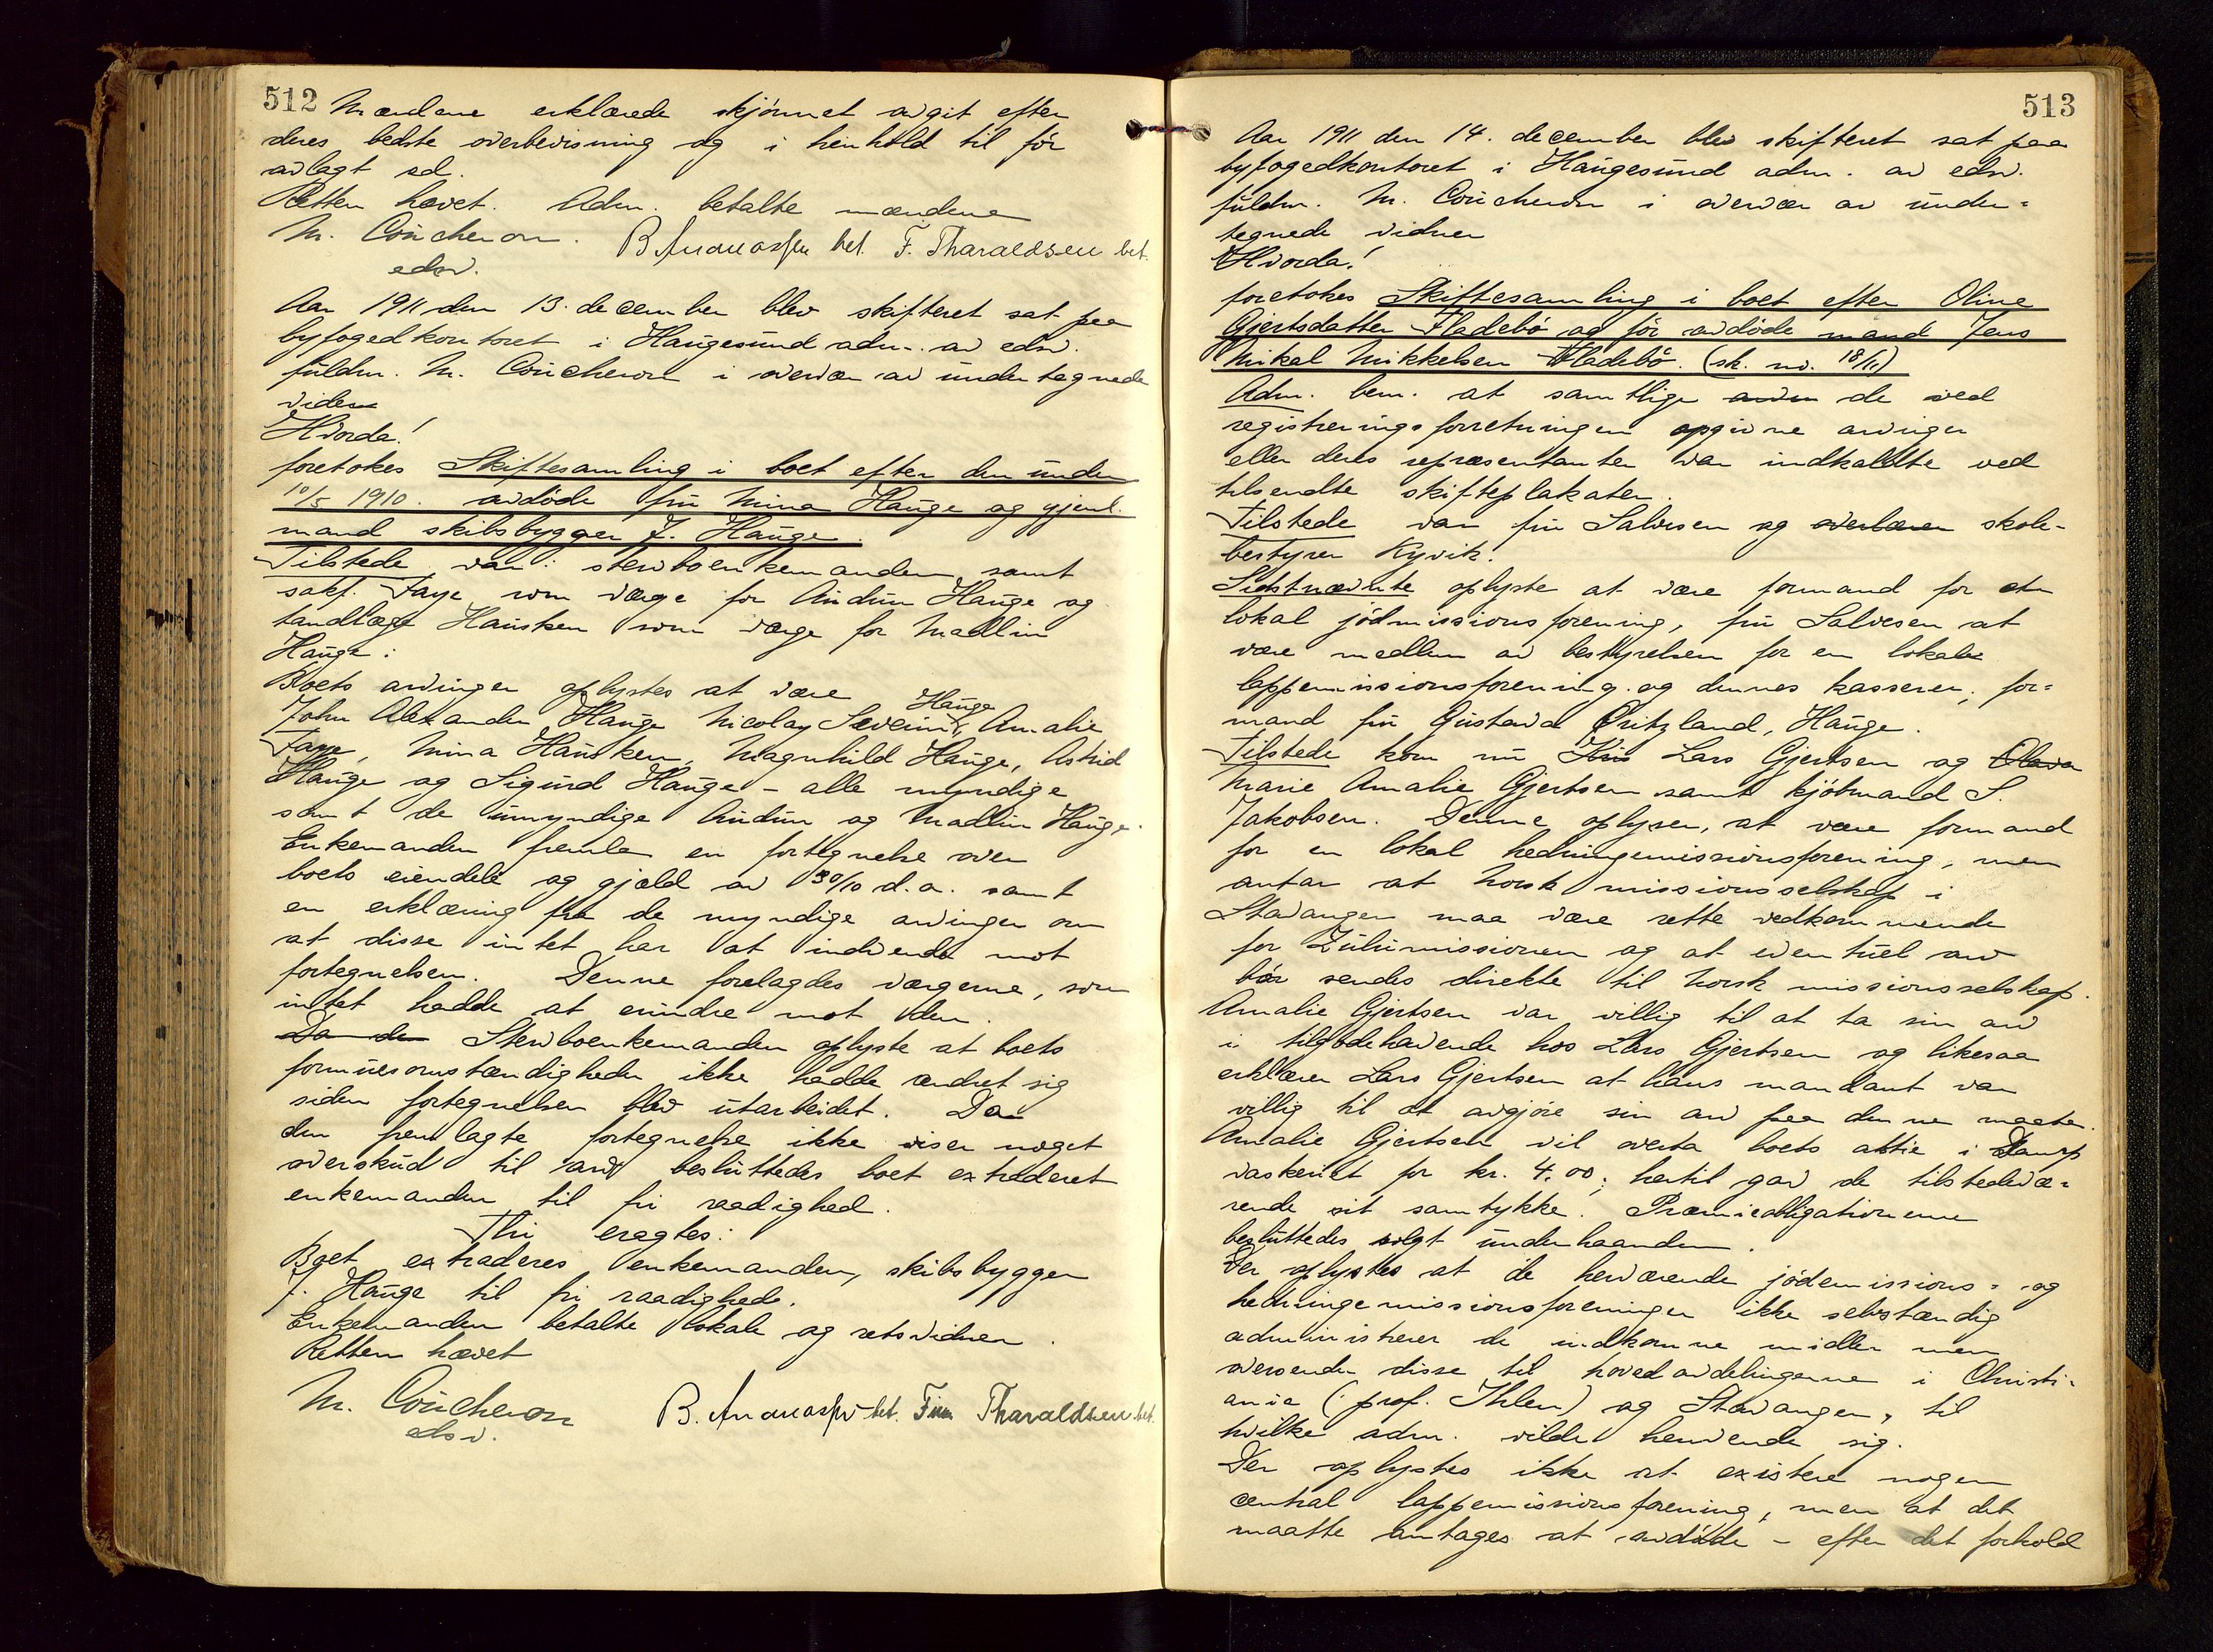 512
Mændene erklærede skjønnet avgit efter
deres bedste overbevisning og i henhold til før
avlagt ed.
Retten hævet. Adm. betalte mændene
M. Coucheron. B. Ananassen bet. F. Tharaldsen bet.
edsv.
Aar 1911 den 13. december blev skifteret sat paa
byfogedkontoret i Haugesund adm. av edsv.
fuldm. M. Coucheron i overvær av undertegnede
vidner
Hvorda!
foretokes Skiftesamling i boet efter den under
10/5 1910. avdøde fru Mina Hauge og gjenl.
mand skibsbygger J. Hauge.
Tilstede var: sterboenkemanden samt
sakf. Faye som værge for Audun Hauge og
tandlæge Hausken som værge for Madlin
Hauge:
Boets arvinger oplystes at være
John Alexander Hauge Nicolay Severin Hauge, Amalie
Faye, Mina Hausken, Magnhild Hauge, Astrid
Hauge og Sigurd Hauge - alle myndige
samt de umyndige Audun og Madlin Hauge.
Enkemanden fremla en fortegnelse over
boets eiendele og gjæld av 30/10 d.a. samt
en erklæring fra de myndige arvinger om
at disse intet har at indvende mot
fortegnelsen. Denne forelagdes værgerne, som
intet hadde at erindre mot den.
Da den Stervboenkemanden oplyste at boets
formuesomstændigheder ikke hadde ændret sig
siden fortegnelsen blev utarbeidet. Da
den fremlagte fortegnelse ikke viser noget
overskud til arv besluttedes boet extraderet
enkemanden til fri raadighed.
Thi eragtes:
Boet extraderes enkemanden, skibsbygger
J. Hauge til fri raadighed.
Enkemanden betalte lokale og retsvidner.
Retten hævet
M. Coucheron B. Ananassen bet. Finn Tharaldsen bet.
edsv.
513
Aar 1911 den 14. december blev skifteret sat paa
byfogedkontoret i Haugesund adm. av edsv.
fuldm. M. Coucheron i overvær av under-
tegnede vidner
Hvorda!
foretokes Skiftesamling i boet efter Oline
Gjertsdatter Fladebø og før avdøde mand Jens
Mikal Mikkelsen Fladebø. (sk. nv. 18/11)
Adm. bem. at samtlige de ved
registreringsforretningen opgivne arvinger
eller deres repræsentanter var indkaldte ved
tilsendte skifteplakater.
Tilstede var fru Salvesen og overlærer skole-
bestyrer Kyvik.
Sidstnævnte oplyste at være formand for den
lokal jødmissionsforening, fru Salvesen at
være medlem av bestyrelsen for en lokale
lappemissionsforening og dennes kasserer, for-
mand fru Gustava Øritzland, Hauge.
Tilstede kom nu Lars Gjertsen og Olava
Marie Amalie Gjertsen samt kjøbmand S.
Jakobsen. Denne oplyser, at være formand
for en lokal hedningemissionsforening, men
antar at Norsk missionsselskap i
Stavanger maa være rette vedkommende
for Zulumissionen og at eventuel arv
bør sendes direkte til Norsk missionsselskap.
Amalie Gjertsen var villig til at ta sin arv
i tilgodehavende hos Lars Gjertsen og likesaa
erklærer Lars Gjertsen at hans mandant var
villig til at avgjøre sin arv paa denne maate.
Amalie Gjertsen vil overta boets aktie i Damp
vaskeriet for kr. 4.00; hertil gav de tilstedevæ-
rende sit samtykke. Præmieobligationerne
besluttedes solgt underhaanden.
Der oplystes at de herværende jødemissions- og
hedningemissionsforeninger ikke selvstændig
administrerer de indkomne midler men
oversender disse til hovedavdelingerne i Christi-
ania (: prof. Ihlen) og Stavanger, til
hvilke adm. vilde henvende sig.
Der oplystes ikke at existere nogen
central lappemissionsforening, men at det
maatte antages at avdøde - efter det forhold